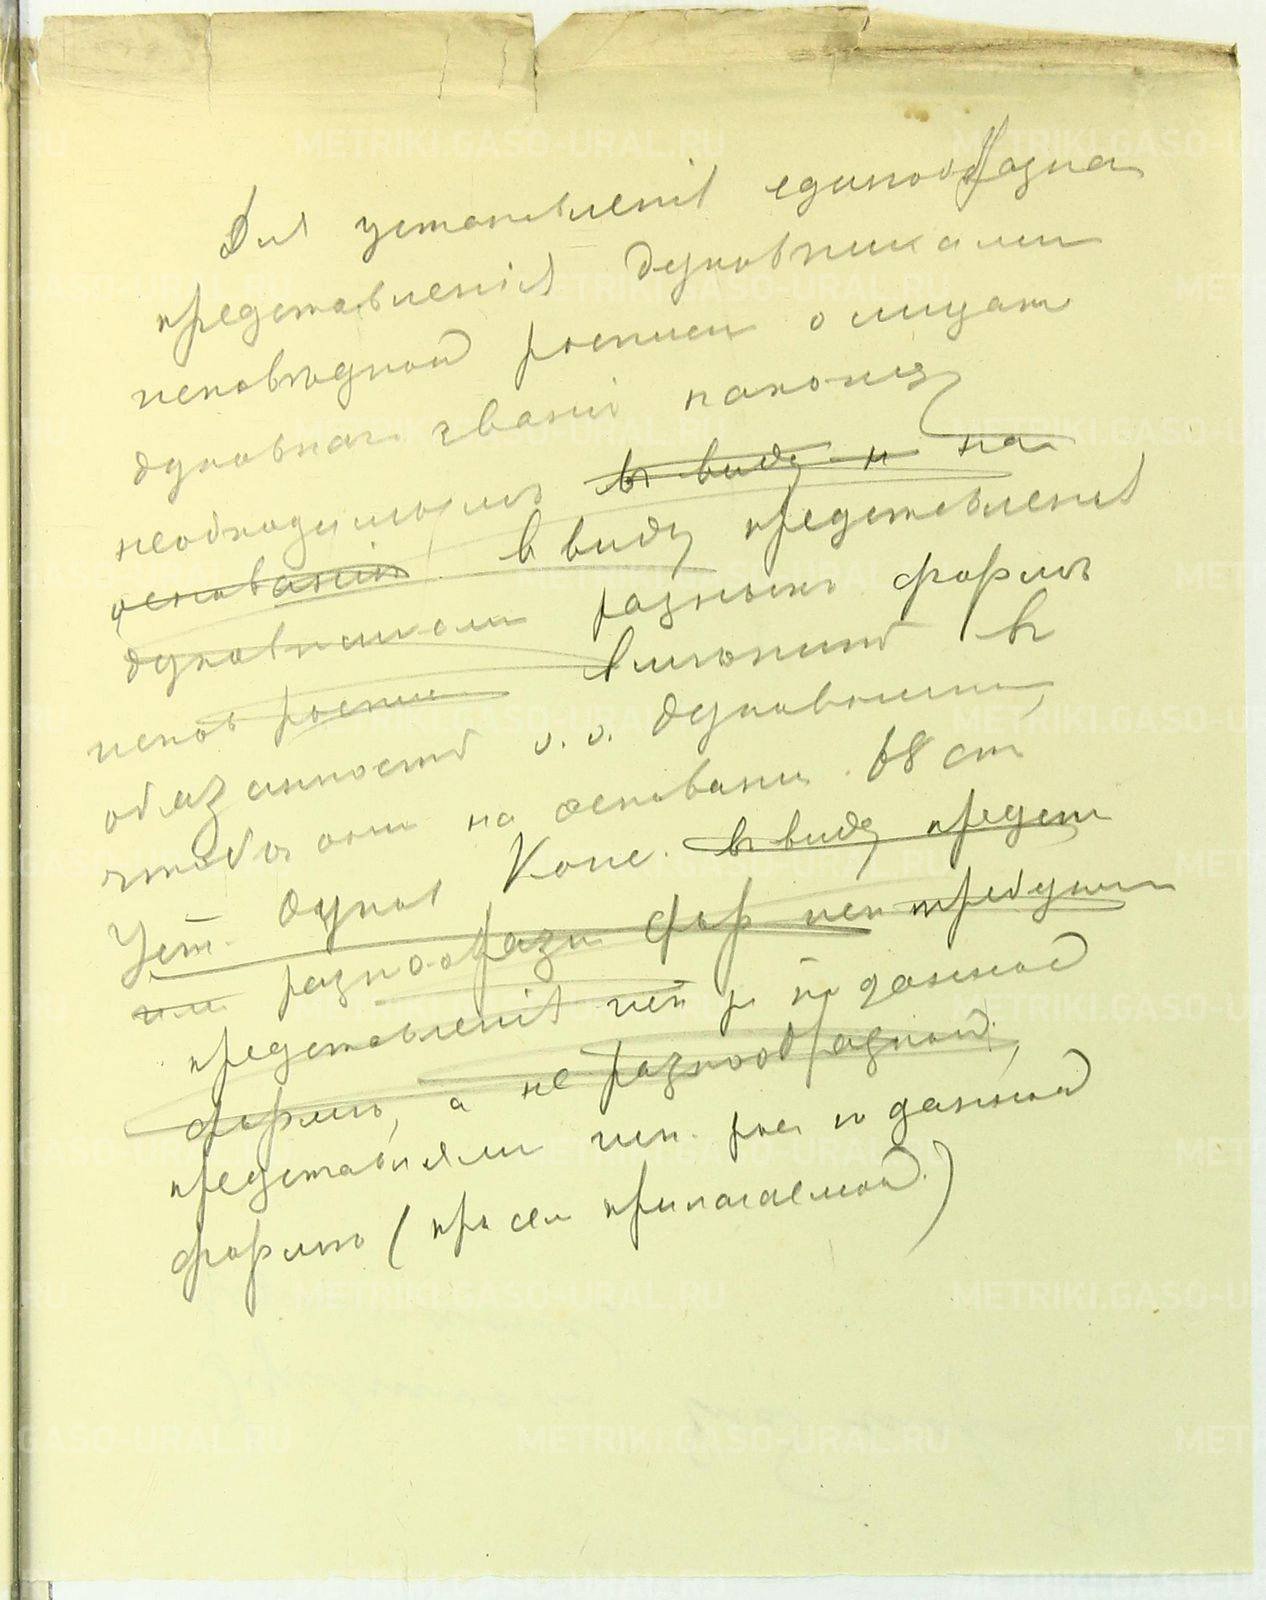 Для установленія единообразна
представленія духовниками
исповѣдной росписи о лицахъ
духовнаг званія нахожу
необходимымъ въ виду и на
основаніи въ виду представленія
духовниками разныхъ формъ
испов росписи вмѣнить въ
обязанность о. о. духовникамъ,
чтобъ они на основаніи 68 ст
Уст. Духов Конс. въ виду предст
или разнообразн фор исп требуют
представленія исп р по данной
формѣ, а не разнообразной,
представляли исп. рос по данной
формѣ (при сем прилагаемой.)
METRIKI.GASO-URAL.RU